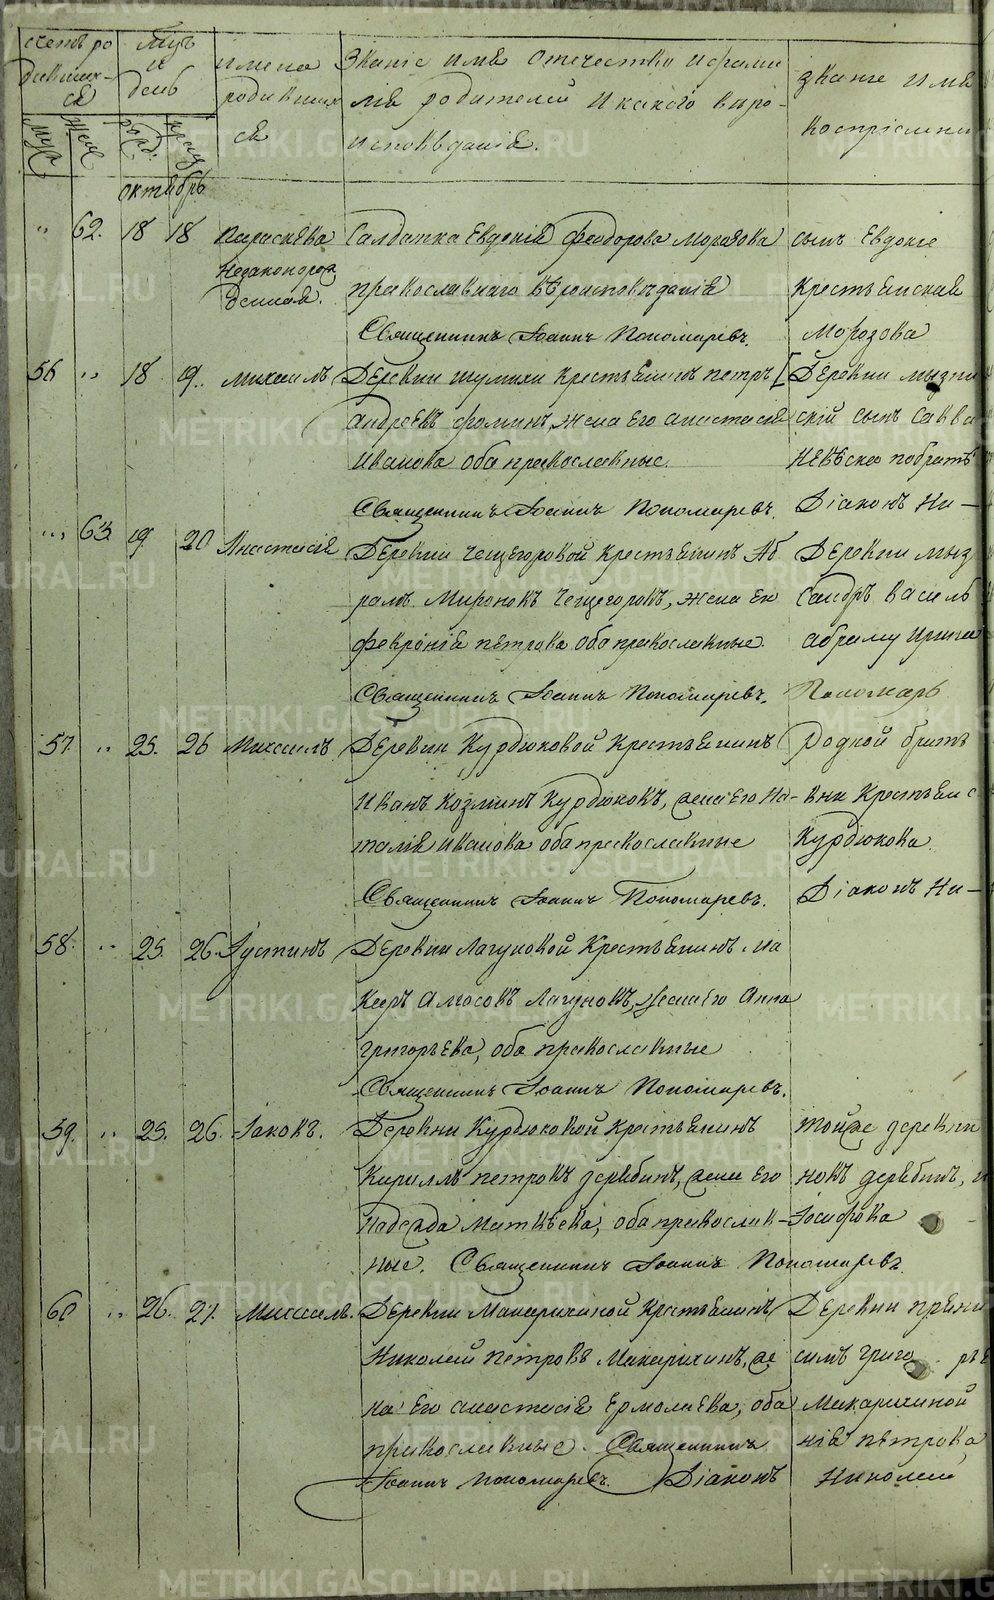 счетъ родившихся
мцъ и день
имена родившихся
званіе имя отечество и фамилія родителей и какого вѣроисповѣданія.
званіе имя
воспріемни
муж
жен
рожд.
крещ
октябрь
" 62. 18 18 Параскева Солдатка Евдокія Феодорова Морозова сынъ Евдокіе
незаконорожденная. православнаго вѣроисповѣданія крестьянская
Священникъ Іоаннъ Пономаревъ. Морозова
56 " 18 19. Михаилъ Деревни Шумихи крестьянинъ Петръ Деревни Мызни
Андреевъ Фоминъ, жена его Анастасія скій сынъ Савва
Иванова оба православные.
Священникъ Іоаннъ Пономаревъ. Діаконъ Ни-
" 63 19 20 Анастасія Деревни Чещегоровой крестьянинъ Аб Деревни Мыз
рамъ Мироновъ Чещегоровъ, жена ево сандръ Василь
Февронія Петрова оба православные. Абраму Ирина
Священникъ Іоаннъ Пономаревъ. Пономарь
57. " 25. 26 Михаилъ Деревни Курдюковой крестьянинъ Родной братъ
Иванъ Козминъ Курдюковъ, жена его На- вни крестьянс
талія Иванова оба православные Курдюкова
Священникъ Іоаннъ Пономаревъ. Діаконъ Ни-
58. " 25. 26. Іустинъ Деревни Лагуновой крестьянинъ Ма
каръ Амосовъ Лагуновъ, жена его Анна
Григорьева, оба православные
Священникъ Іоаннъ Пономаревъ.
59. " 25. 26. Іаковъ. Деревни Курдюковой крестьянинъ тойже деревни
Кириллъ Петровъ Дерябинъ, жена его новъ Дерябинъ, и
Надежда Матвѣева, оба православ- Іосифова
ные. Священникъ Іоаннъ Пономаревъ.
60 " 26. 27. Михаилъ. Деревни Макарихиной крестьянинъ Деревни Пряни
Николай Петровъ Макарихинъ, же симъ Григо рье
на его Анастасія Ермолаева, оба Макарихиной
православные. Священникъ нія Петрова,
Іоаннъ Пономаревъ. Діаконъ Николай
METRIKI.GASO-URAL.RU